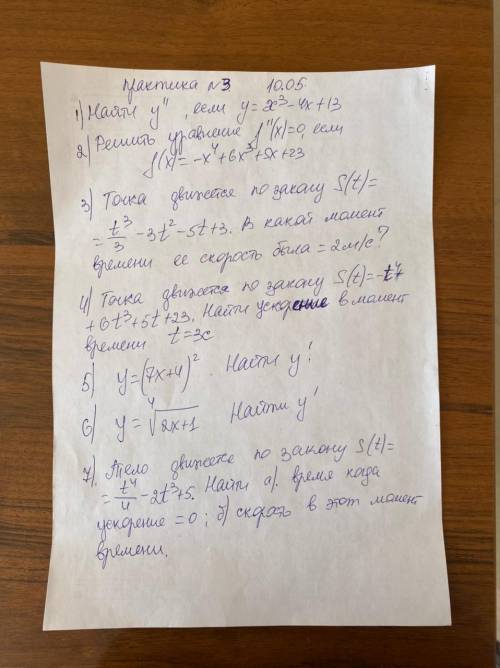 практика №3 10.05
1) Найти y'', если y = x³-4x+13
2) Решить уравнение f''(x)=0, если
f(x)= -x⁴+6x³+5x+23
3) Точка движется по закону S(t)=
= t³/3 -3t²-5t+3. В какой момент
времени ее скорость была = 2м/с?
4) Точка движется по закону S(t)=-t⁴+
+6t³+5t+23. Найти ускорение в момент
времени t=3c
5) y=(7x+4)². Найти y'
6) y=⁴√2x+1 Найти y'
7). Тело движется по закону S(t)=
= t⁴/4 -2t³+5. Найти а). время когда
ускорение =0; б) скорость в этот момент
времени.